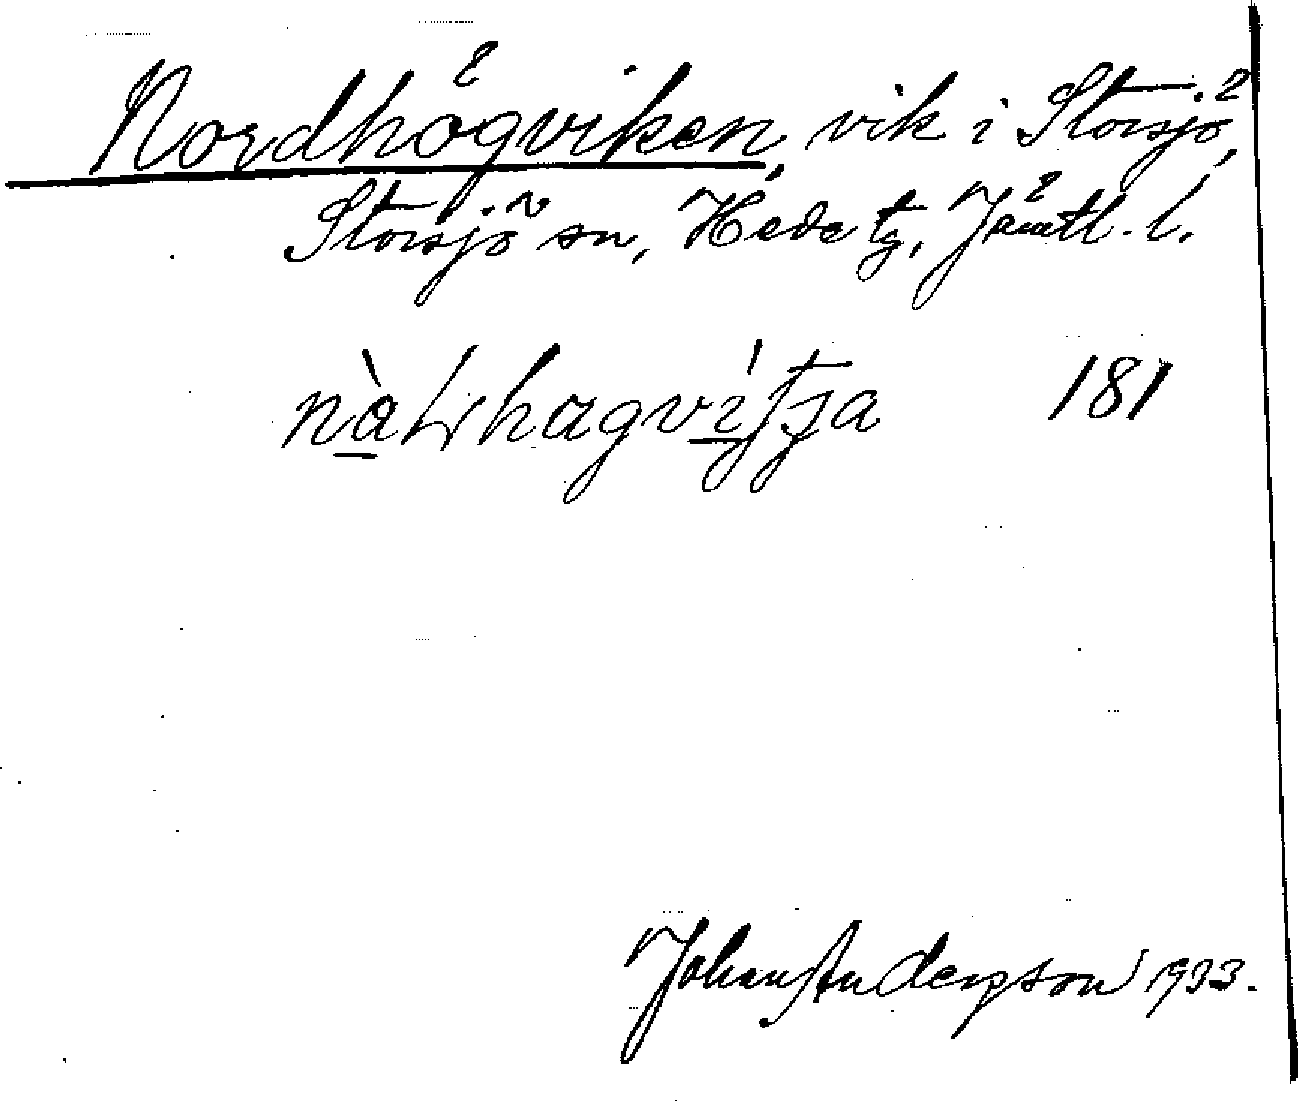 Nordhögviken, vik i Storsjö,
Storsjö sn, Hede tg, Jämtl. l.
181
Johan Anderson 1933.